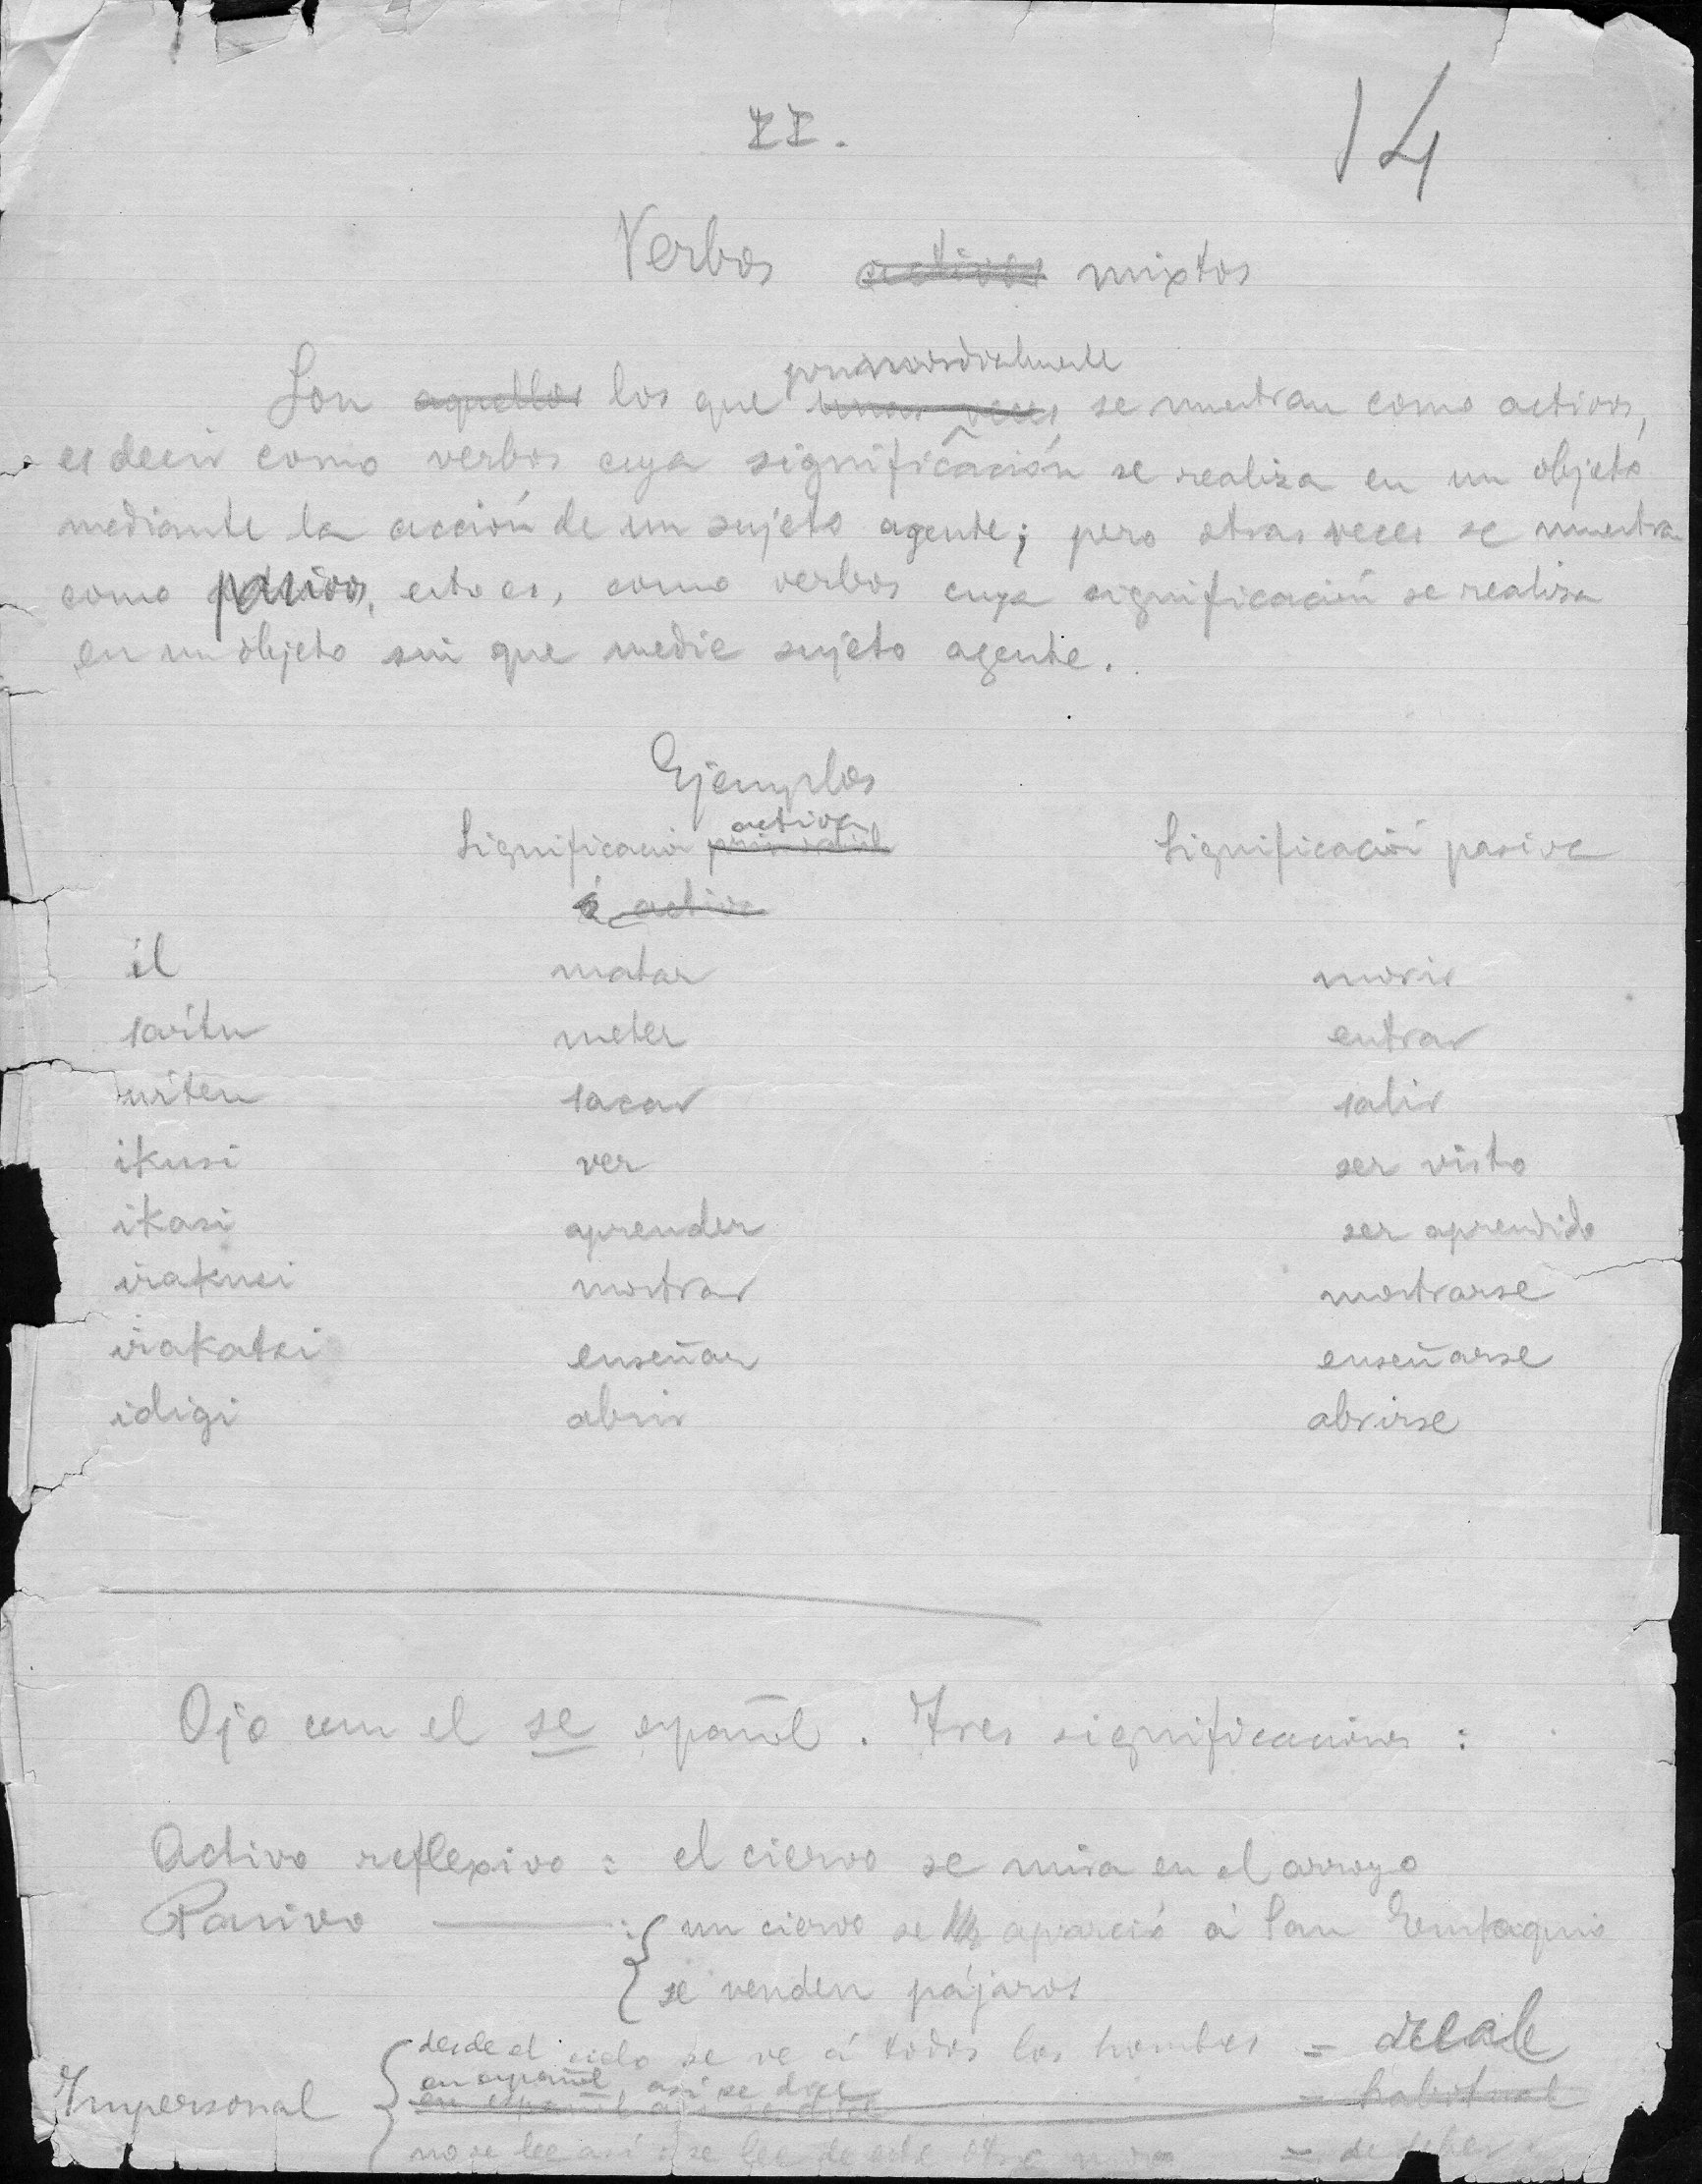 II.
14
Verbos activos mixtos
primordialmente
Son aquellos los que unas veces se muestran como activos,
es decir como verbos cuya significación se realiza en un objeto
mediante la acción de un sujeto agente; pero otras veces se muestran
como pasivos, esto es, como verbos cuya significación se realiza
en un objeto sin que medie sujeto agente.
Ejemplos
activa
Significación Significación pasiva
ó activa
il matar morir
sartu meter entrar
urten sacar salir
ikusi ver ser visto
ikasi aprender ser aprendido
irakusi mostrar mostrarse
irakatsi enseñar enseñarse
idigi abrir abrirse
Ojo con el se español. Tres significaciones:
Activo reflexivo: el ciervo se mira en el arroyo
Pasivo : un ciervo se apareció á San Eustaquio
se venden pájaros
desde el cielo se ve á todos los hombres =
en español, así se dice
Impersonal en español así se dice = habitual
no se lee así: se lee de este otro modo = de deber